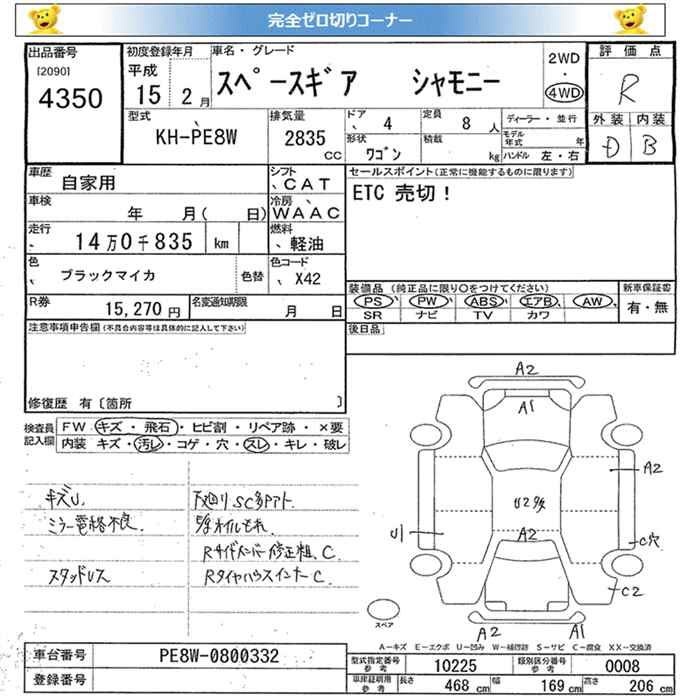 完全ゼロ切りコーナー
出品番号
[2090]
4350
初度登録年月
平成
15 2月
車名・グレード
スペースギア シャモニー
2WD
・
4WD
評価点
R
外装 内装
D B
型式
KH-PE8W
排気量
2835
CC
ドア
4
定員
8 人
形状
ワゴン
積載
kg
ディーラー・並行
モデル年式 年
ハンドル 左・右
車歴
自家用
シフト
CAT
車検
年 月( 日)
冷房
WAAC
走行
14万0千835 km
燃料
軽油
色
ブラックマイカ
色替
色コード
X42
R券
15,270円
名変通知期限
月 日
セールスポイント(正常に機能するものに限ります)
ETC 売切!
装備品 (純正品に限り○をつけてください)
PS PW ABS エアB AW
SR ナビ TV カワ
新車保証書
有・無
後日品
注意事項申告欄(不具合内容等は具体的に記入して下さい)
修復歴 有〔箇所 〕
検査員記入欄
FW キズ・飛石・ヒビ割・リペア跡・×要
内装 キズ・汚レ・コゲ・穴・スレ・キレ・破レ
キズU
ミラー電格不良.
スタッドレス
下廻りSC多Pアト.
E/gオイルもれ.
Rサイドメンバー修正粗、C.
RタイヤハウスインナーC.
A2
A1
A2
U2多
U1
A2
C穴
C2
A2
A1
スペア
A-キズ E-エクボ U-凹み W-補修跡 S-サビ C-腐食 XX-交換済
車台番号
PE8W-0800332
登録番号
型式指定番号
参考
10225
類別区分番号
参考
0008
車庫証明用
参考
長さ
468 cm
幅
169 cm
高さ
206 cm